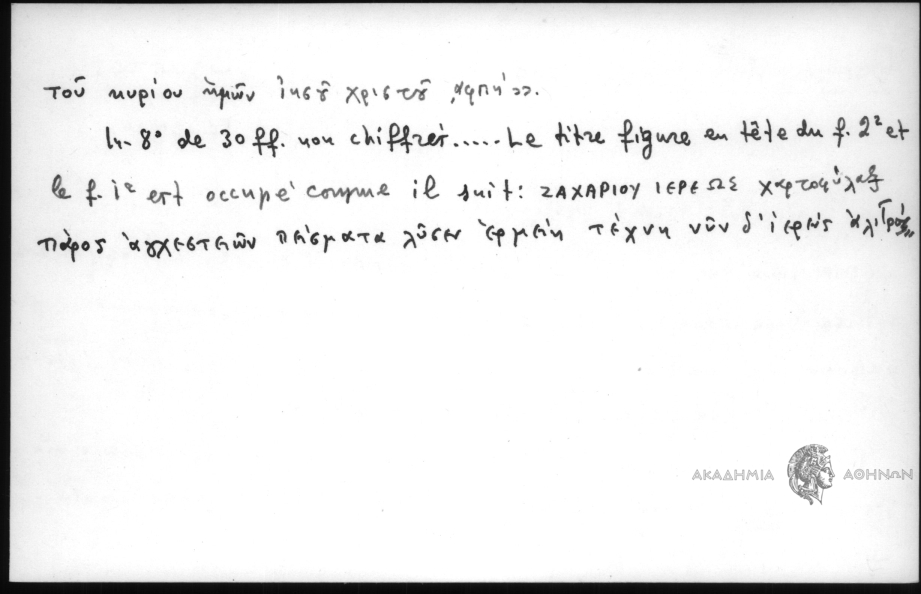 τοῦ κυρίου ἡμῶν ἰησȣ͂ χριστȣ͂ ͵αφπή››.
In-8° de 30 ff. non chiffrés..... Le titre figure en tête du f. 2² et
le f. 1ᵃ est occupé comme il suit: ΖΑΧΑΡΙΟΥ ΙΕΡΕΩΣ χαρτοφύλαξ
πάρος ἀγχεστειῶν πείσματα λῦσεν ἑρμείη τέχνη νῦν δ' ἱερεὺς ἀλιτρόῖς„
ΑΚΑΔΗΜΙΑ ΑΘΗΝΩΝ